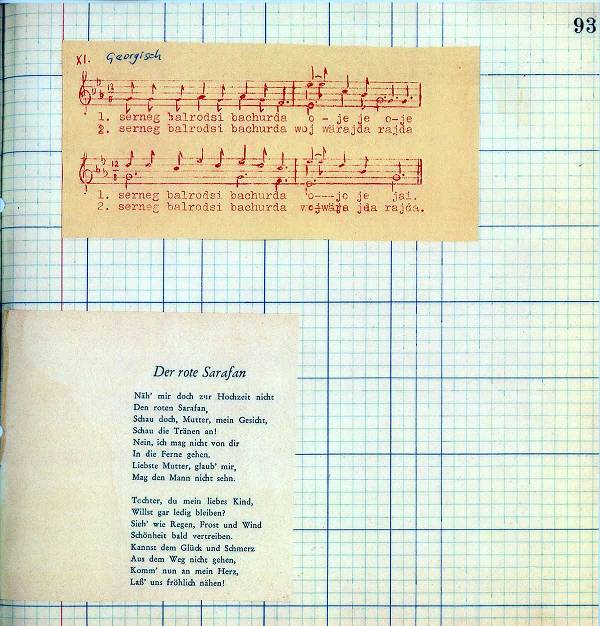 93
XI. Georgisch
1. serneg balrodsi bachurda o - je je o-je
2. serneg balrodsi bachurda woj wärajda rajda
1. serneg balrodsi bachurda o---je je jai.
2. serneg balrodsi bachurda wojwära jda rajda.
Der rote Sarafan
Näh' mir doch zur Hochzeit nicht
Den roten Sarafan,
Schau doch, Mutter, mein Gesicht,
Schau die Tränen an!
Nein, ich mag nicht von dir
In die Ferne gehen.
Liebste Mutter, glaub' mir,
Mag den Mann nicht sehn.
Tochter, du mein liebes Kind,
Willst gar ledig bleiben?
Sieh' wie Regen, Frost und Wind
Schönheit bald vertreiben.
Kannst dem Glück und Schmerz
Aus dem Weg nicht gehen,
Komm' nun an mein Herz,
Laß' uns fröhlich nähen!